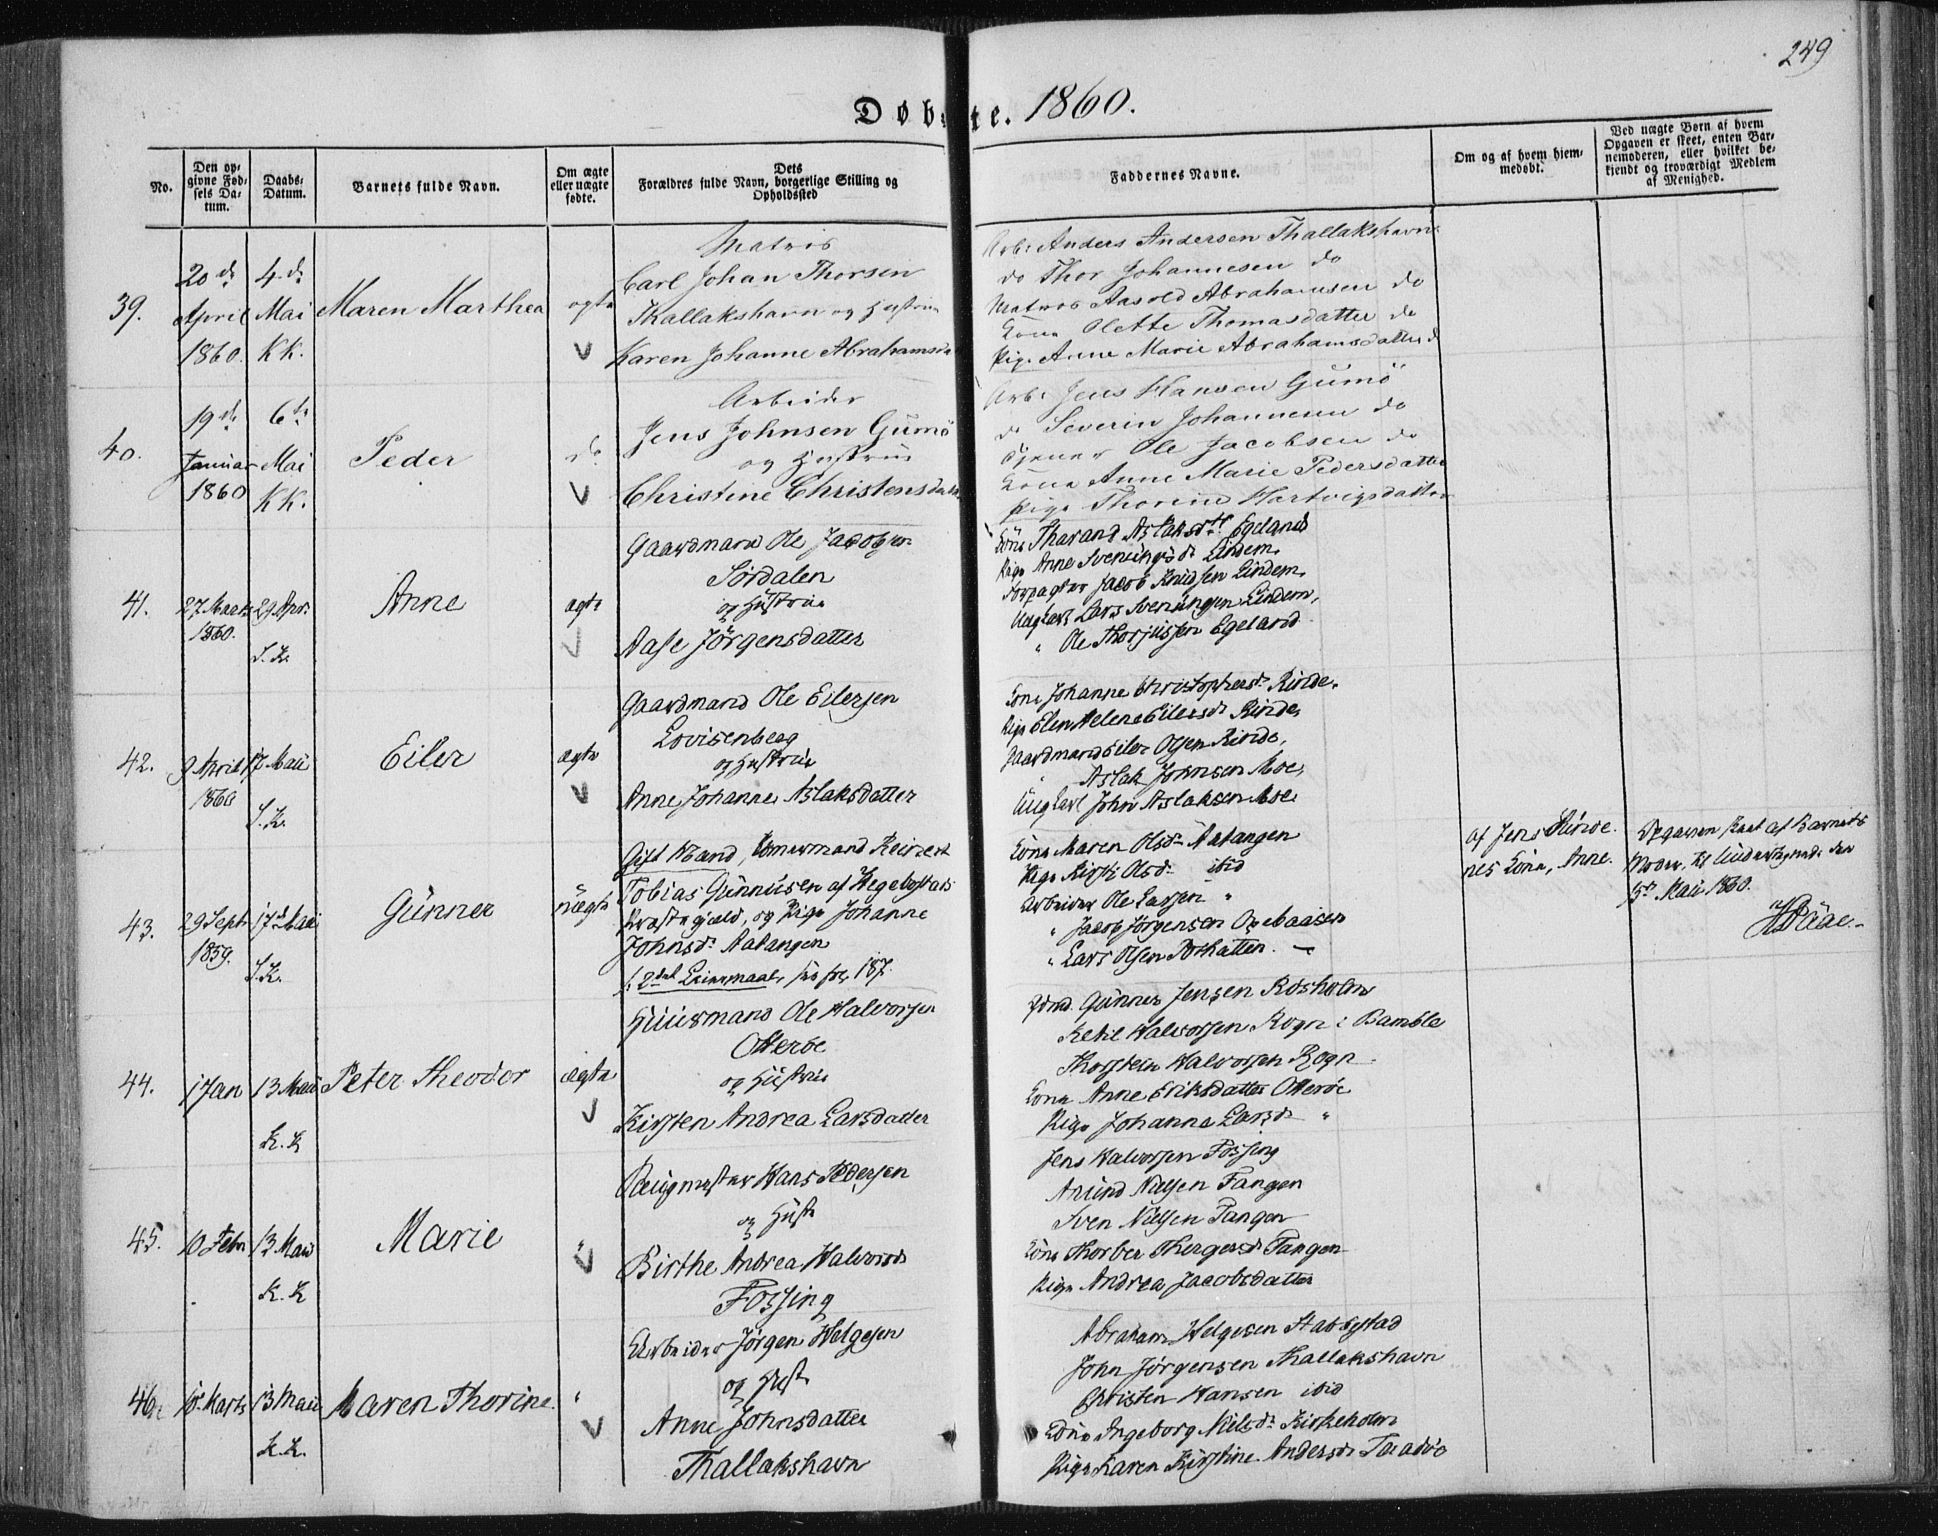 249
Døbte. 1860.
No.
Den opgivne Fødsels Datum.
Daabs-Datum.
Barnets fulde Navn.
Om ægte eller uægte fødte.
Dets Forældres fulde Navn, borgerlige Stilling og Opholdssted
Faddernes Navne.
Om og af hvem hjemmedøbt.
Ved uægte Børn af hvem Opgaven er skeet, enten Barnemoderen, eller hvilket bekjendt og troværdigt Medlem af Menighed.
39.
20de April 1860.
4de Mai KK.
Maren Marthea
ægte
Matros
Carl Johan Thorsen
Thallakshavn og Hustru
Karen Johanne Abrahamsda
Arb: Anders Andersen Thallakshavn
do Thor Johannesen do
Matros Aasold Abrahamsen do
Kone Olette Thomasdatter do
Pige Anne Marie Abrahamsdatter d
40.
19de Januar 1860
6te Mai KK.
Peder
do
Arbeider
Jens Johnsen Gumö
og Hustru
Christine Christensdatter
Arb: Jens Hansen Gumö
do Severin Johannesen do
Tjener Ole Jacobsen do
Kone Anne Marie Pedersdatter
Pige Thorine Hartvigsdatter
41.
27 Marts 1860.
29 Apr: S.K.
Anne
ægte
Gaardmand Ole Jacobsen
Sørdalen
og Hustru
Aase Jörgensdatter
Kone Tharand Aslaksdtr Egeland
Pige Anne Sveningsd: Lindem.
Forpagter Jacob Knudsen Lindem.
Ungkarl Lars Sveningsen Lindem,
" Ole Thorjussen Egeland
42.
9 April 1860
17 Mai S.K.
Eiler
ægte
Gaardmand Ole Eilersen
Lovisenberg
og Hustru
Anne Johanne Aslaksdatter
Kone Johanne Christophersd: Rinde.
Pige Elen Helene Eilersd: Rinde,
Gaardmand Eiler Olsen Rinde,
" Aslak Johnsen Moe,
Ungkarl John Aslaksen Moe
43.
29 Septr 1859.
17de Mai S.K.
Gunner
uægte
Gift Mand, Reinert
Tobias Gunnusen af Hegebostad
Præstegjæld, og Pige Johanne
Johnsd: Aatangen
f. 2det Leiermaal, see fol. 187.
Kone Maren Olsd: Aatangen
Pige Kirsti Olsd: ibid
Arbeider Ole Larsen "
" Jacob Jörgensen
" Lars Olsen
af Jens
nes Kone, Anne.
Opgaven skeet af Barnets
Moder, til Undertegnede den
5te Mai 1860.
44.
1 Jan
13 Mai K.K
Peter Theodor
ægte
Huusmand Ole Halvorsen
Otteröe
og Hustru
Kirsten Andrea Larsdatter
Gmd. Gunner Jensen Rosholm
Ketil Halvorsen Rogn i Bamble
Thorsten Halvorsen Rogn
Kone Anne Eriksdatter Otteröe
Pige Johanne Larsd: "
45.
10 Febr
13 Mai K.K
Marie
"
Hans Pedersen
og Hustr
Birthe Andrea Halvorsd:
Fossing
Jens Halvorsen Fossing
Anund Nielsen Tangen
Sven Nielsen Tangen
Kone Thorber Thorgersd: Tangen
Pige Andrea Jacobsdatter
46.
18 Marts
13 Mai K.K.
Maren Thorine
"
Arbeider Jörgen Helgesen
og Hust
Anne Johnsdatter
Thallakshavn
Abraham Helgesen Stabbestad
John Jörgensen Thallakshavn
Christen Hansen ibid
Kone Ingeborg Nilsd: Kirkeholm
Pige Karen Kirstine Andersd: Taadöe